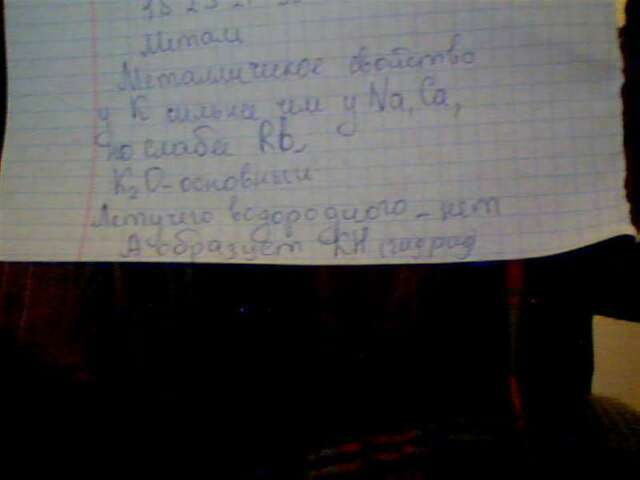 Метал
Металличиское свойство
у К сильнее чем у Na, Ca,
но слабее Rb,
K₂O - основный
Летучего водородного - нет
образует KH (гидрид